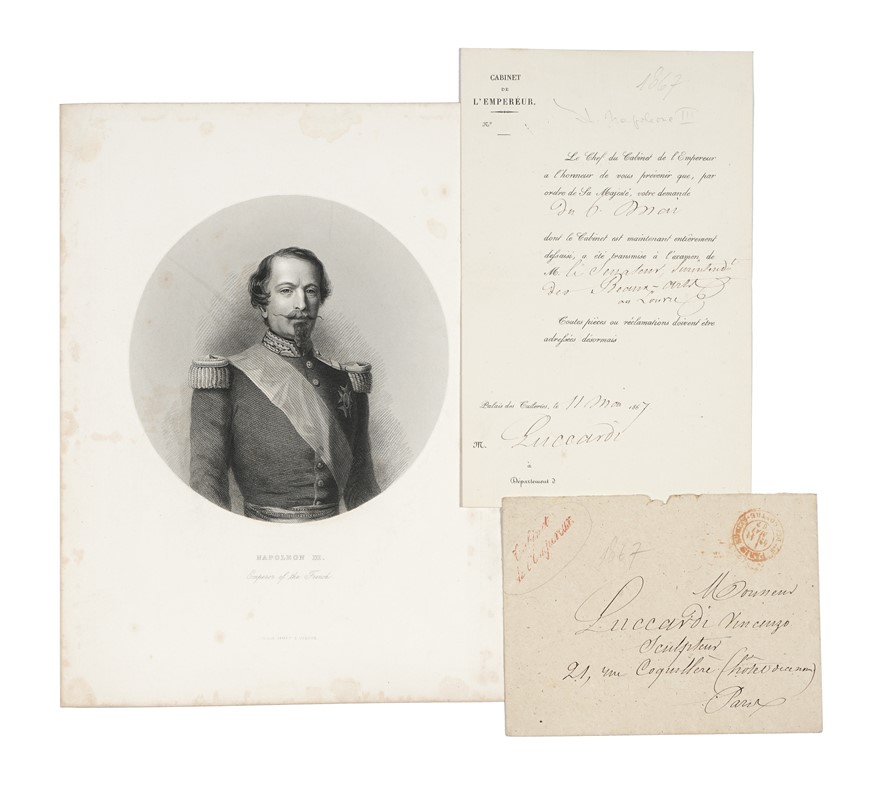 NAPOLEON III.
Emperor of the French
CABINET
DE
L'EMPEREUR.
N°
1867
Napoleon III
Le Chef du Cabinet de l'Empereur
a l'honneur de vous prévenir que, par
ordre de Sa Majesté, votre demande
du 6 Mai
dont le Cabinet est maintenant entièrement
dessaisi, a été transmise à l'examen de
M. le Senateur, Surintendt
des Beaux-arts
au Louvre
Toutes pièces ou réclamations doivent être
adressées désormais
Palais des Tuileries, le 11 Mai 1867
M. Luccardi
à
Département d
Cabinet
de l'Empereur.
1867
PARIS
Monsieur
Luccardi Vincenzo
Sculpteur
21, rue Coquillère (hôtel
Paris